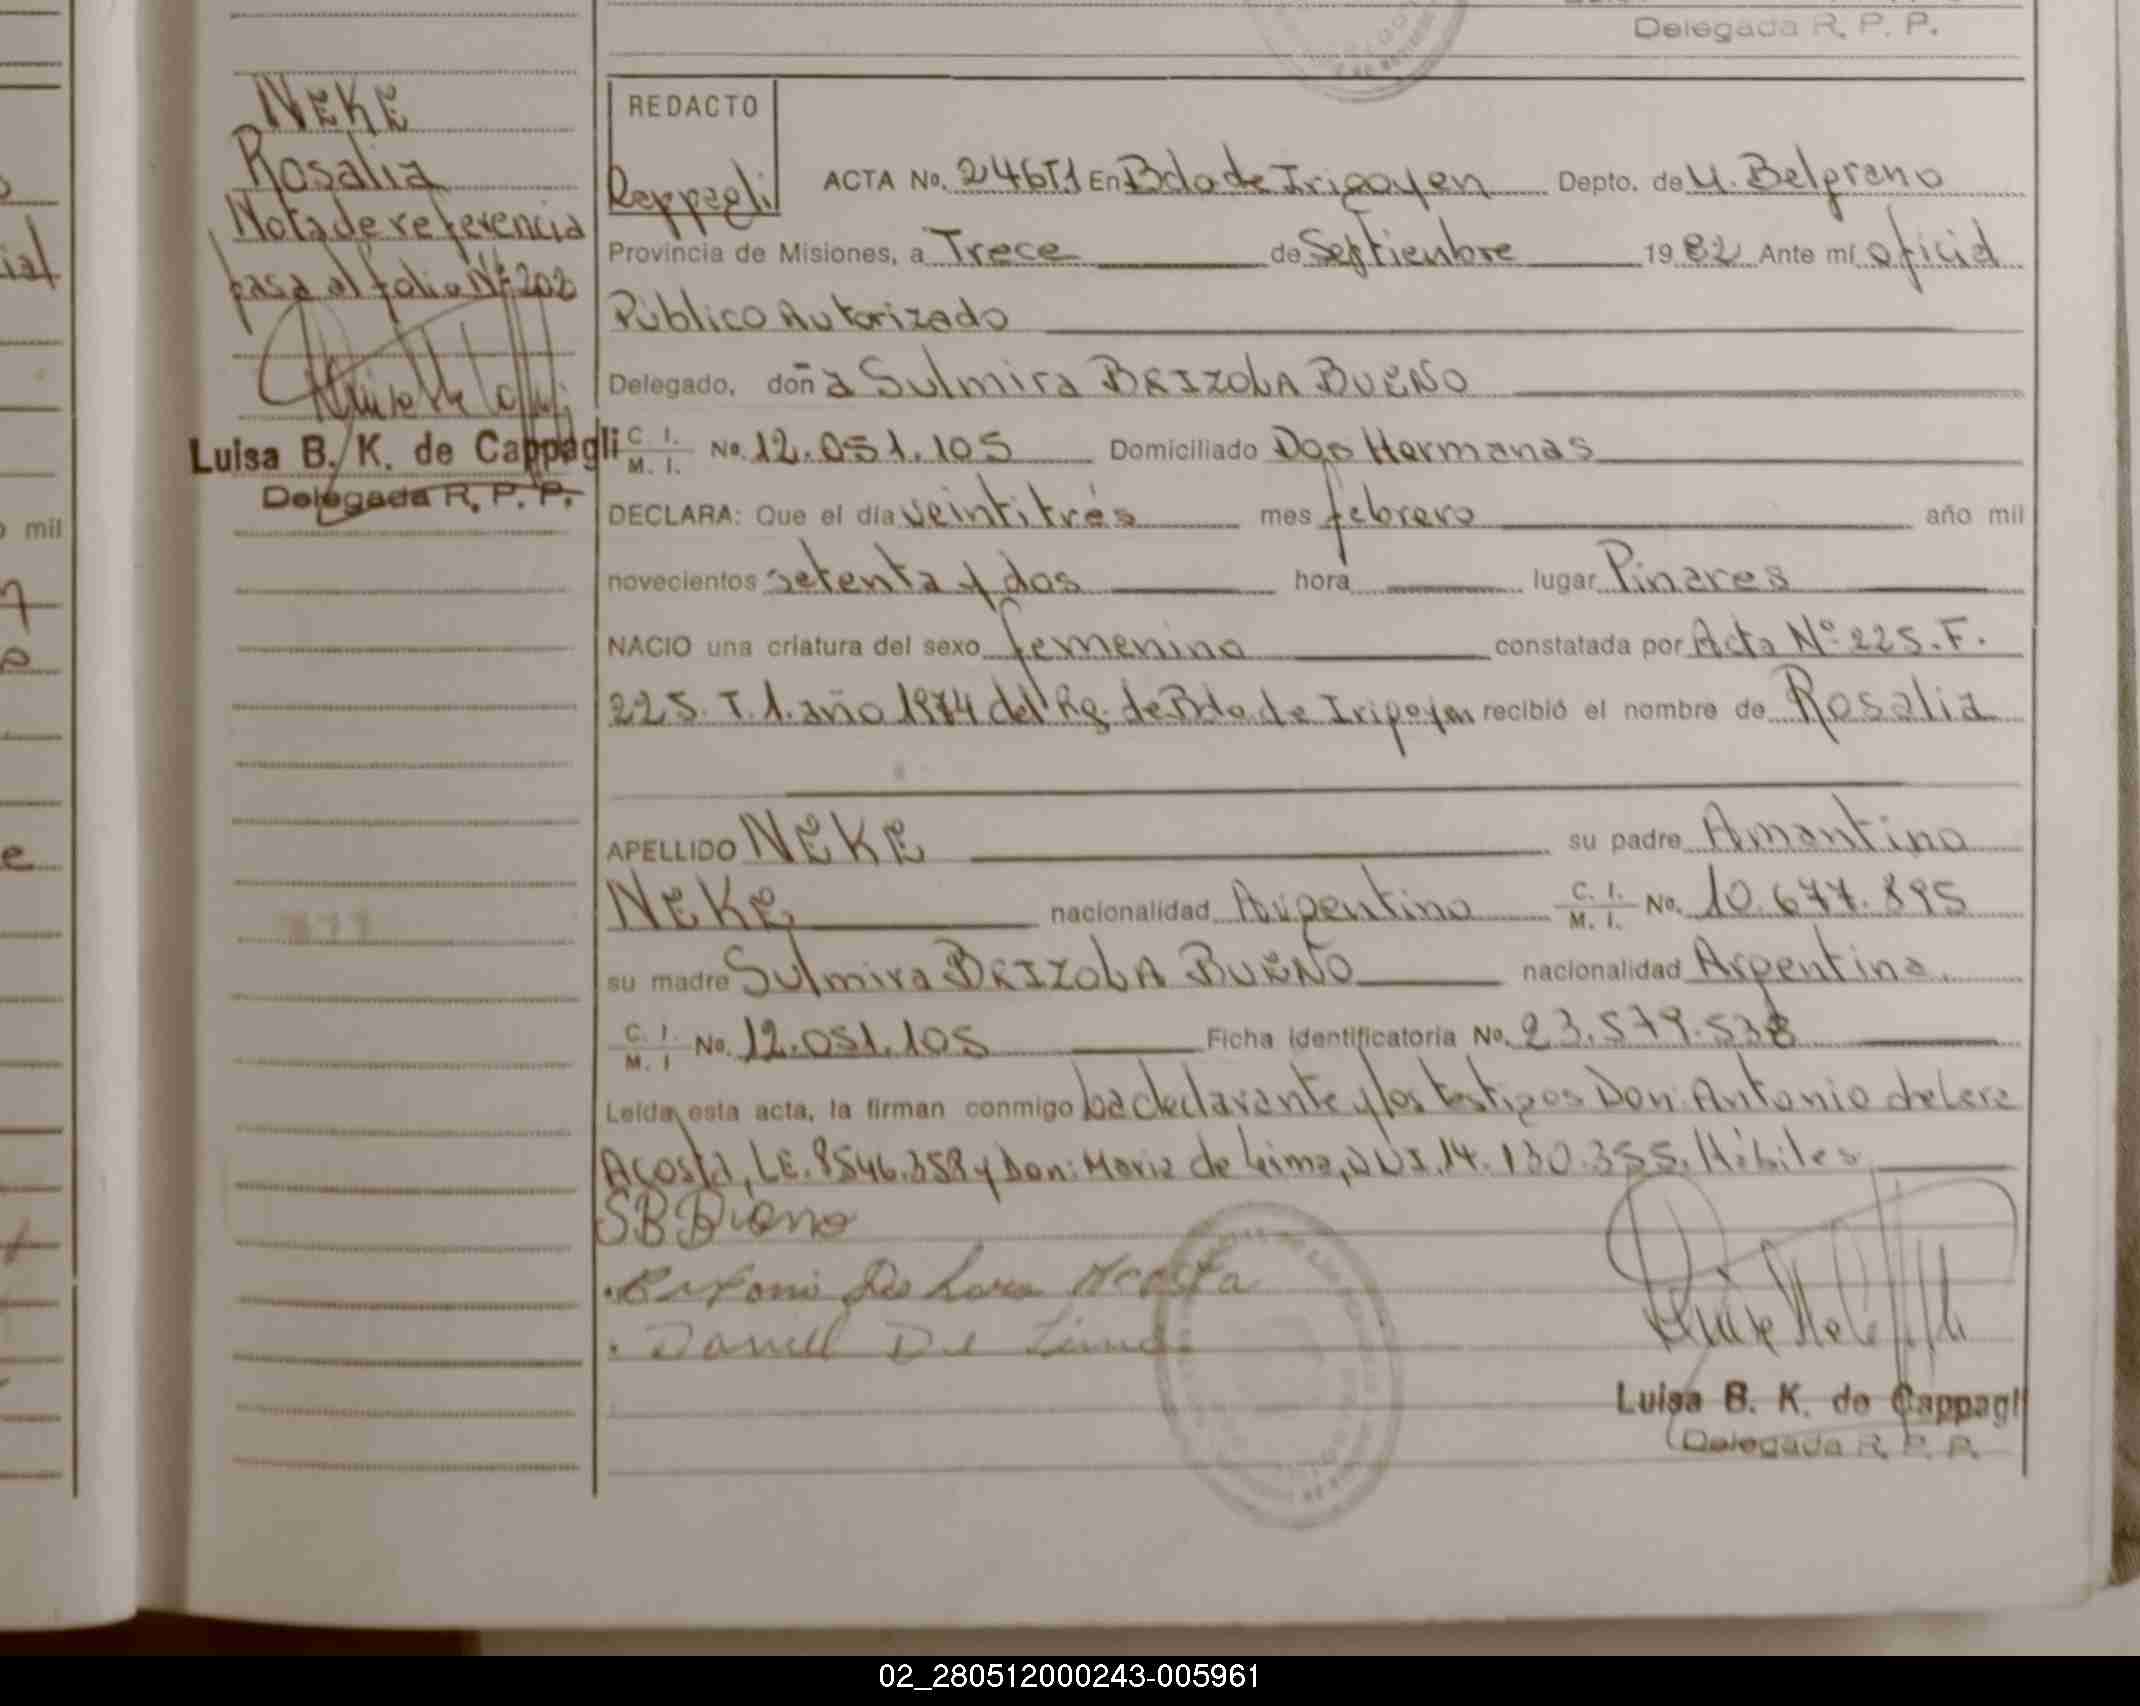 Delegada R. P. P.
NEKE
Rosalia
Nota de referencia
pasa al folio Nº 202
Luisa B. K. de Cappagli
Delegada R. P. P.
REDACTO
ACTA No. 246T1 En Bdo de Irigoyen Depto. de M. Belgrano
Provincia de Misiones, a Trece de Septienbre 1982 Ante mí oficial
Público Autorizado
Delegado, doña Sulmira BRIZOLA BUENO
C. I. M. I. No. 12.051.105 Domiciliado Dos Hermanas
DECLARA: Que el día veintitrés mes febrero año mil
novecientos setenta y dos hora lugar Pinares
NACIO una criatura del sexo femenino constatada por Acta Nº 225. F.
225. T. 1. año 1974 del Rg. de Bdo. de Irigoyen recibió el nombre de Rosalia
APELLIDO NEKE su padre Amantino
NEKE nacionalidad Argentino C. I. M. I. No. 10.677.895
su madre Sulmira BRIZOLA BUENO nacionalidad Argentina.
C. I. M. I No. 12.051.105 Ficha identificatoria No. 23.579.538
Leída esta acta, la firman conmigo La declarante y los testigos Don: Antonio de Lara
Acosta, LE. 8546.358 y Don: Mario de Lima, DNI. 14.130.355. Hábiles
SB Bueno
Antonio De Lara Acosta
Daniel De Lima
Luisa B. K. de Cappagli
Delegada R. P. P.
mil
e
02_280512000243-005961